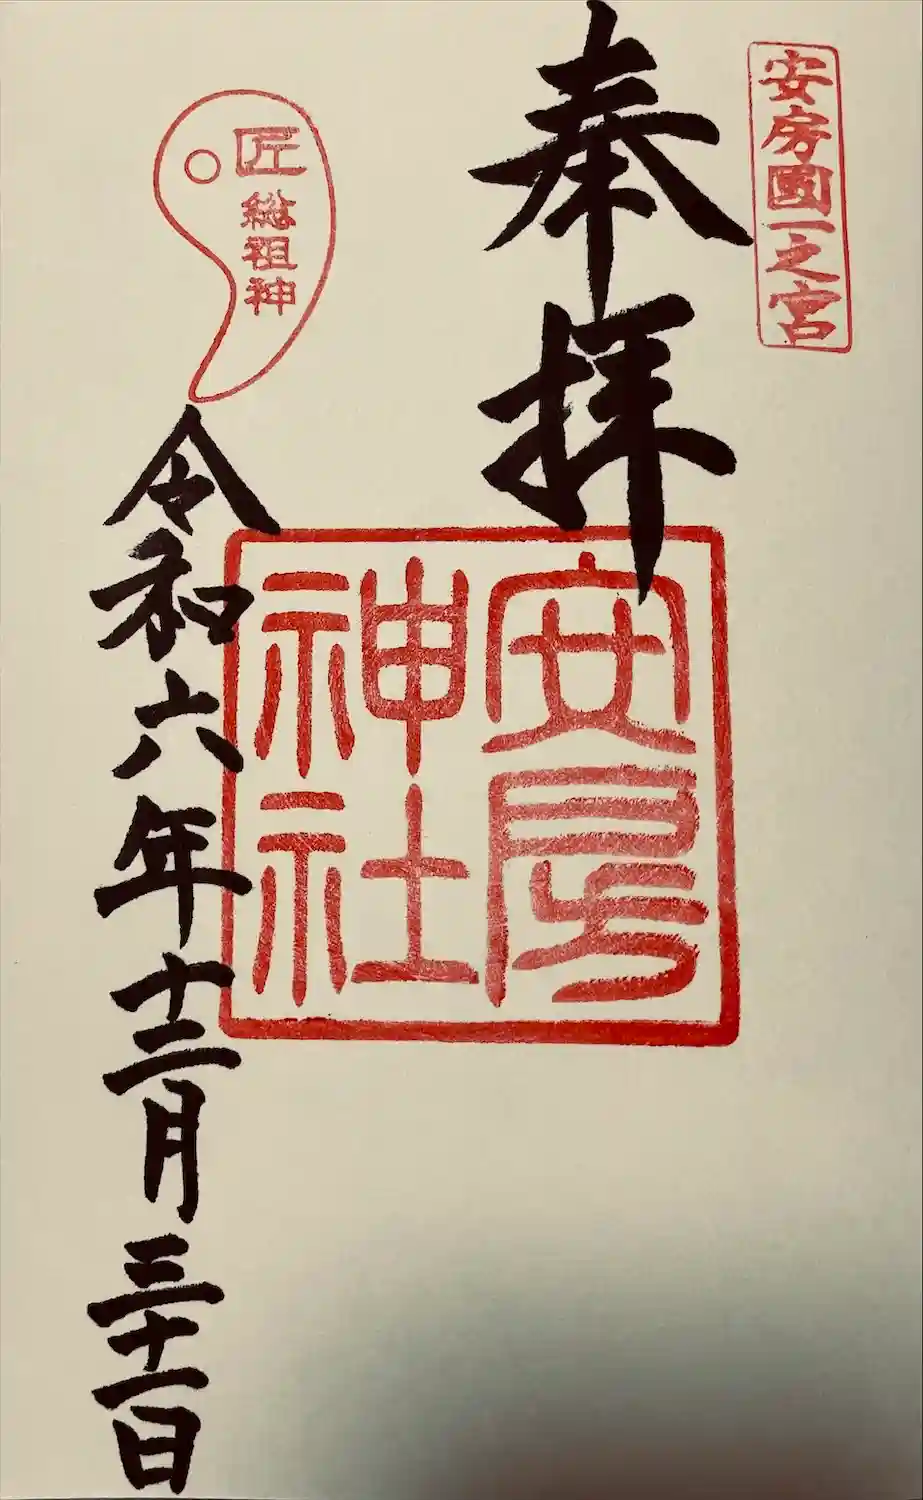 安房國一之宮
奉拝
安房
神社
匠
総祖神
令和六年十二月三十一日